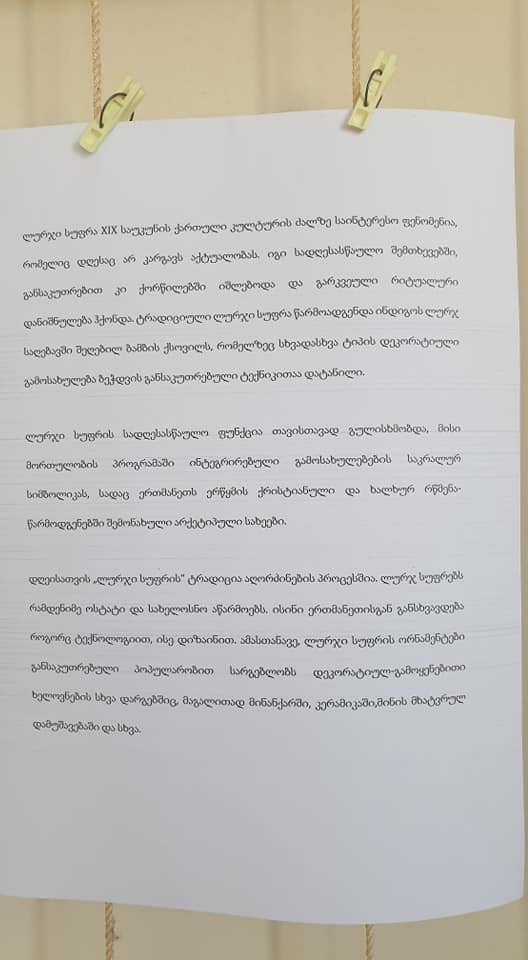 ლურჯი სუფრა XIX საუკუნის ქართული კულტურის ძალზე საინტერესო ფენომენია,
რომელიც დღესაც არ კარგავს აქტუალობას. იგი სადღესასწაულო შემთხვევებში,
განსაკუთრებით კი ქორწილებში იშლებოდა და გარკვეული რიტუალური
დანიშნულება ჰქონდა. ტრადიციული ლურჯი სუფრა წარმოადგენდა ინდიგოს ლურჯ
საღებავში შეღებილ ბამბის ქსოვილს, რომელზეც სხვადასხვა ტიპის დეკორატიული
გამოსახულება ბეჭდვის განსაკუთრებული ტექნიკითაა დატანილი.
ლურჯი სუფრის სადღესასწაულო ფუნქცია თავისთავად გულისხმობდა, მისი
მორთულობის პროგრამაში ინტეგრირებული გამოსახულებების საკრალურ
სიმბოლიკას, სადაც ერთმანეთს ერწყმის ქრისტიანული და ხალხურ რწმენა-
წარმოდგენებში შემონახული არქეტიპული სახეები.
დღეისათვის „ლურჯი სუფრის“ ტრადიცია აღორძინების პროცესშია. ლურჯ სუფრებს
რამდენიმე ოსტატი და სახელოსნო აწარმოებს. ისინი ერთმანეთისგან განსხვავდება
როგორც ტექნოლოგიით, ისე დიზაინით. ამასთანავე, ლურჯი სუფრის ორნამენტები
განსაკუთრებული პოპულარობით სარგებლობს დეკორატიულ-გამოყენებითი
ხელოვნების სხვა დარგებშიც, მაგალითად მინანქარში, კერამიკაში,მინის მხატვრულ
დამუშავებაში და სხვა.